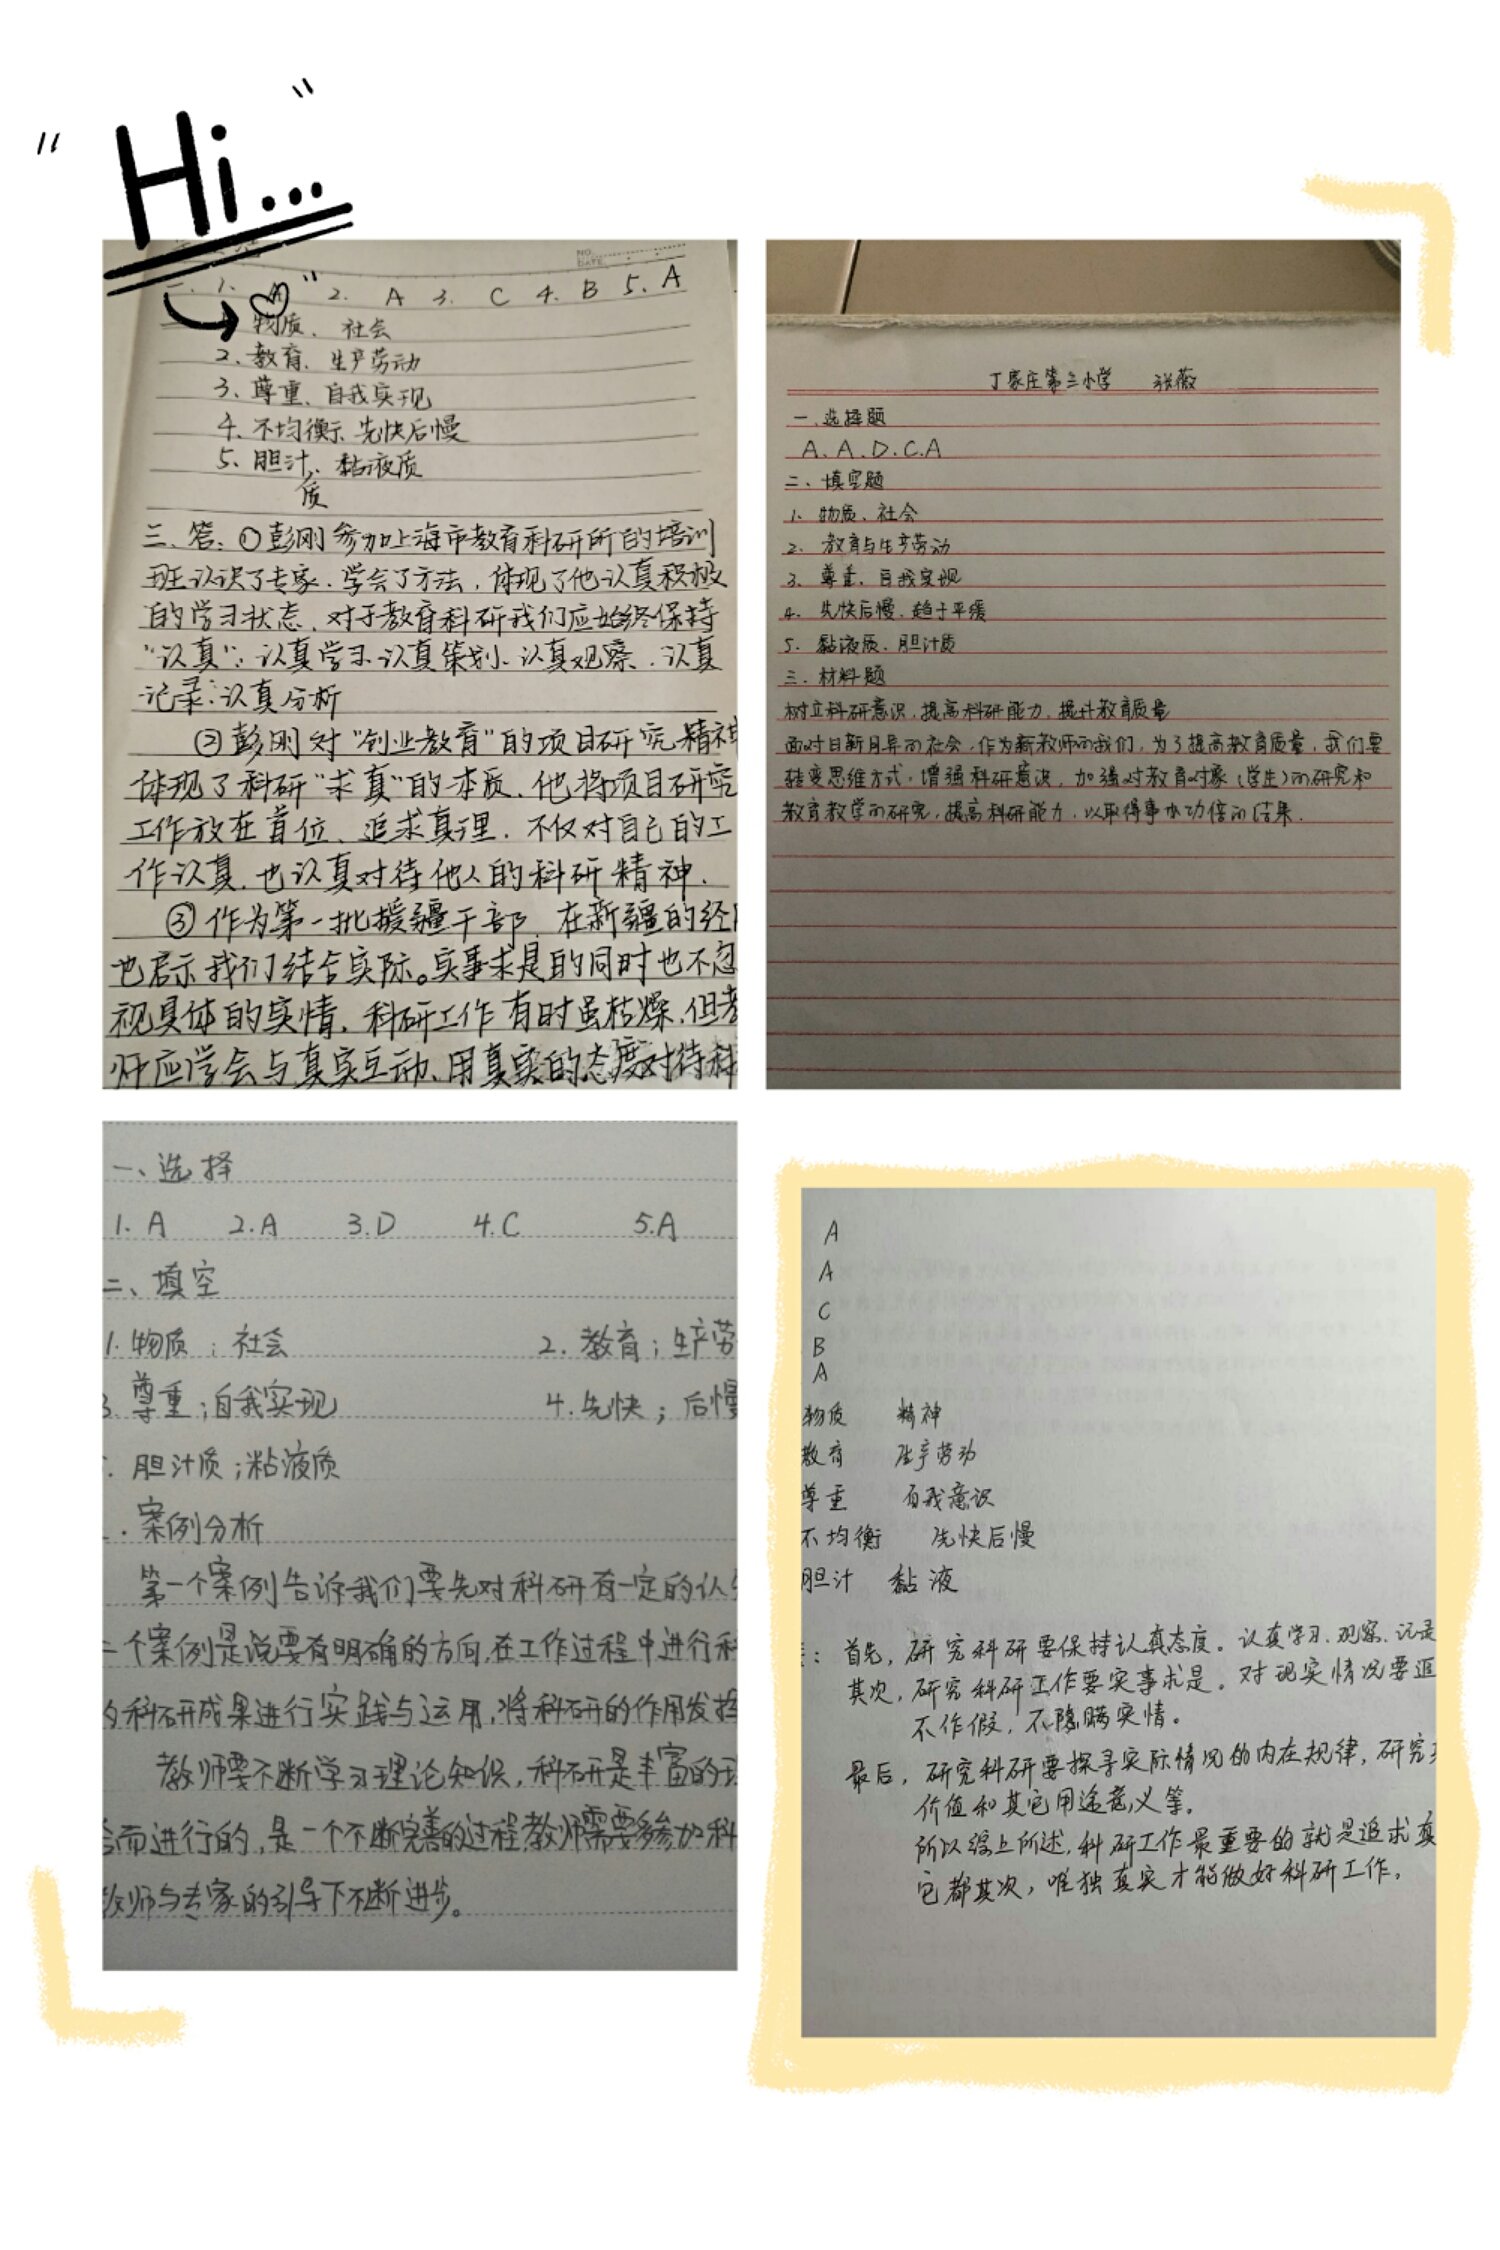 Hi...
NO.
DATE
一、1. A 2. A 3. C 4. B 5. A
物质、社会
2、教育、生产劳动
3、尊重、自我实现
4、不均衡、先快后慢
5、胆汁、黏液质
质
三、答:①彭刚参加上海市教育科研所的培训
班认识了专家、学会了方法,体现了他认真积极
的学习状态,对于教育科研我们应始终保持
“认真”:认真学习、认真策划、认真观察、认真
记录、认真分析
②彭刚对“创业教育”的项目研究精神
体现了科研“求真”的本质,他将项目研究
工作放在首位、追求真理,不仅对自己的工
作认真,也认真对待他人的科研精神.
③作为第一批援疆干部,在新疆的经
也启示我们结合实际。实事求是的同时也不忽
视具体的实情,科研工作有时虽枯燥,但
师应学会与真实互动、用真实的态度对待科
丁家庄第三小学 张薇
一、选择题
A、A、D、C、A
二、填空题
1、物质、社会
2、教育与生产劳动
3、尊重、自我实现
4、先快后慢、趋于平缓
5、黏液质、胆汁质
三、材料题
树立科研意识,提高科研能力,提升教育质量
面对日新月异的社会,作为新教师的我们,为了提高教育质量,我们要
转变思维方式,增强科研意识,加强对教育对象(学生)的研究和
教育教学的研究,提高科研能力,以取得事半功倍的结果.
一、选择
1. A 2. A 3. D 4. C 5. A
二、填空
1. 物质;社会 2. 教育;生产劳
3. 尊重;自我实现 4. 先快;后慢
胆汁质;粘液质
案例分析
第一个案例告诉我们要先对科研有一定的认
个案例是说要有明确的方向,在工作过程中进行科
的科研成果进行实践与运用,将科研的作用发挥
教师要不断学习理论知识,科研是丰富的
而进行的,是一个不断完善的过程,教师需要多参加科
教师与专家的引导下不断进步。
A
A
C
B
A
物质 精神
教育 生产劳动
尊重 自我意识
不均衡 先快后慢
胆汁 黏液
:首先,研究科研要保持认真态度。认真学习、观察、记录
其次,研究科研工作要实事求是。对现实情况要追
不作假,不隐瞒实情。
最后,研究科研要探寻实际情况的内在规律,研究
价值和其它用途意义等。
所以综上所述,科研工作最重要的就是追求真
它都其次,唯独真实才能做好科研工作.